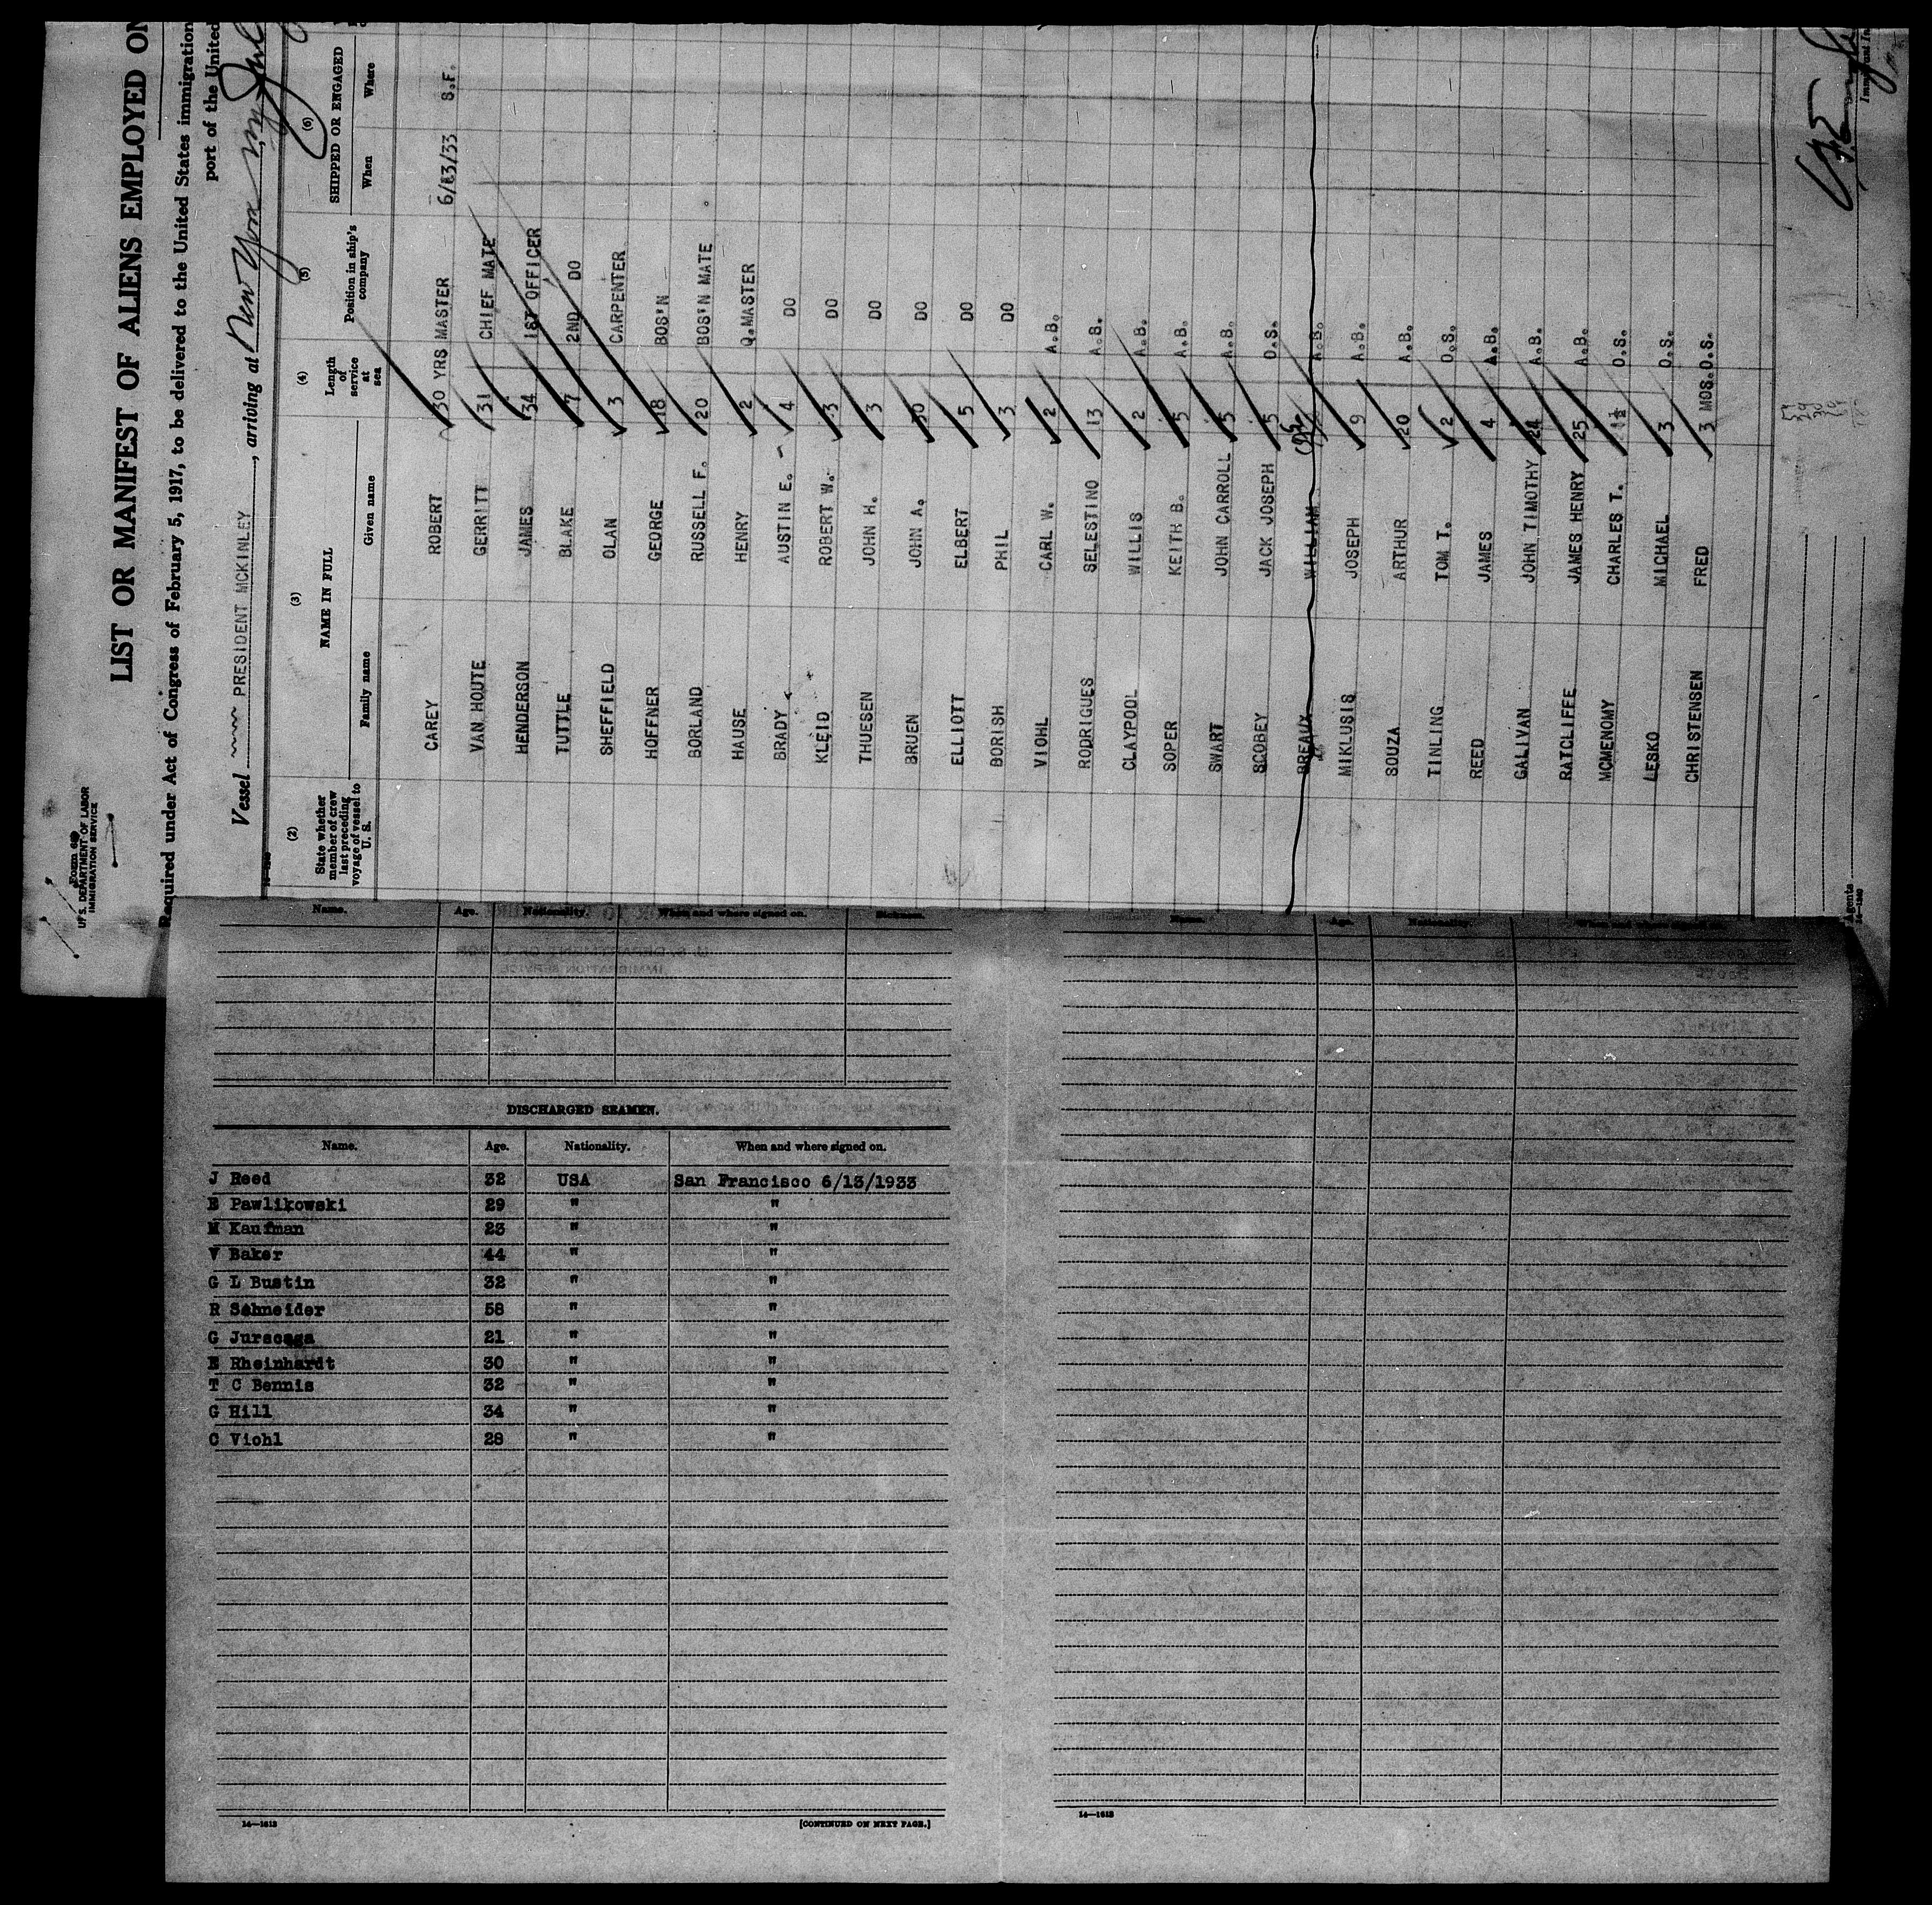 Form 689
U. S. DEPARTMENT OF LABOR
IMMIGRATION SERVICE
LIST OR MANIFEST OF ALIENS EMPLOYED ON
Required under Act of Congress of February 5, 1917, to be delivered to the United States immigration
port of the United
Vessel PRESIDENT MCKINLEY, arriving at New York
(2) (3) (4) (5) (6)
State whether member of crew last preceding voyage of vessel to U. S. NAME IN FULL Length of service at sea Position in ship's company SHIPPED OR ENGAGED
Family name Given name When Where
CAREY ROBERT 30 YRS MASTER 6/13/33 S.F.
VAN HOUTE GERRITT 31 CHIEF MATE
HENDERSON JAMES 34 1ST OFFICER
TUTTLE BLAKE 7 2ND DO
SHEFFIELD OLAN 3 CARPENTER
HOFFNER GEORGE 18 BOS'N
BORLAND RUSSELL F. 20 BOS'N MATE
HAUSE HENRY 2 Q.MASTER
BRADY AUSTIN E. 4 DO
KLEID ROBERT W. 3 DO
THUESEN JOHN H. 3 DO
BRUEN JOHN A. 30 DO
ELLIOTT ELBERT 5 DO
BORISH PHIL 3 DO
VIOHL CARL W. 2 A.B.
RODRIGUES SELESTINO 13 A.B.
CLAYPOOL WILLIS 2 A.B.
SOPER KEITH B. 5 A.B.
SWART JOHN CARROLL 5 A.B.
SCOBEY JACK JOSEPH 5 O.S.
BREAUX WILLIAM A.B.
MIKLUSIS JOSEPH 9 A.B.
SOUZA ARTHUR 20 A.B.
TINLING TOM T. 2 O.S.
REED JAMES 4 A.B.
GALIVAN JOHN TIMOTHY 24 A.B.
RATCLIFFE JAMES HENRY 25 A.B.
MCMENOMY CHARLES T. 1½ O.S.
LESKO MICHAEL 3 O.S.
CHRISTENSEN FRED 3 MOS. O.S.
Agents
14—1240
Name. Age. Nationality. When and where signed on. Sickness.
DISCHARGED SEAMEN.
Name. Age. Nationality. When and where signed on.
J Reed 32 USA San Francisco 6/13/1933
E Pawlikowski 29 " "
M Kaufman 23 " "
V Baker 44 " "
G L Bustin 32 " "
R Schneider 58 " "
G Juracaga 21 " "
E Rheinhardt 30 " "
T C Bennis 32 " "
G Hill 34 " "
C Viohl 28 " "
14—1613 [CONTINUED ON NEXT PAGE.]
Name. Age. Nationality. When and where signed on.
14—1613